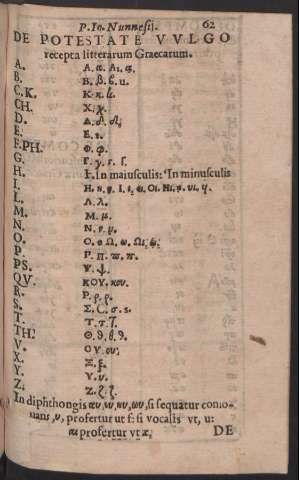 P. Io. Nunnesij. 62
DE POTESTATE VVLGO
recepta litterarum Graecarum.
A. Α. α. Αι. ᾳ.
B. Β. β. ϐ. u.
C.K. Κ. κ. ϰ.
CH. Χ. χ.
D. Δ. δ.
E. Ε. ε.
F.PH. Φ. φ.
G. Γ. γ.
H. In maiusculis: In minusculis
I. Η. η. Ι. ι. ει. ΟΙ. Ηι. ῃ. υι.
L. Λ. λ.
M. Μ. μ.
N. Ν. ν.
O. Ο. ο Ω. ω. Ωι. ῳ.
P. Π. π. ϖ.
PS. Ψ. ψ.
QV. ΚΟΥ. κου.
R. Ρ. ρ. ϱ.
S. Σ. C. σ. ς.
T. Τ. τ.
TH. Θ. ϑ. θ.
V. ΟΥ ου.
X. Ξ. ξ.
Y. Υ. υ.
Z. Ζ. ζ.
In diphthongis αυ, ευ, ηυ, ωυ, si sequatur conso-
nans, υ, profertur ut f: si vocalis vt, u:
profertur vt DE